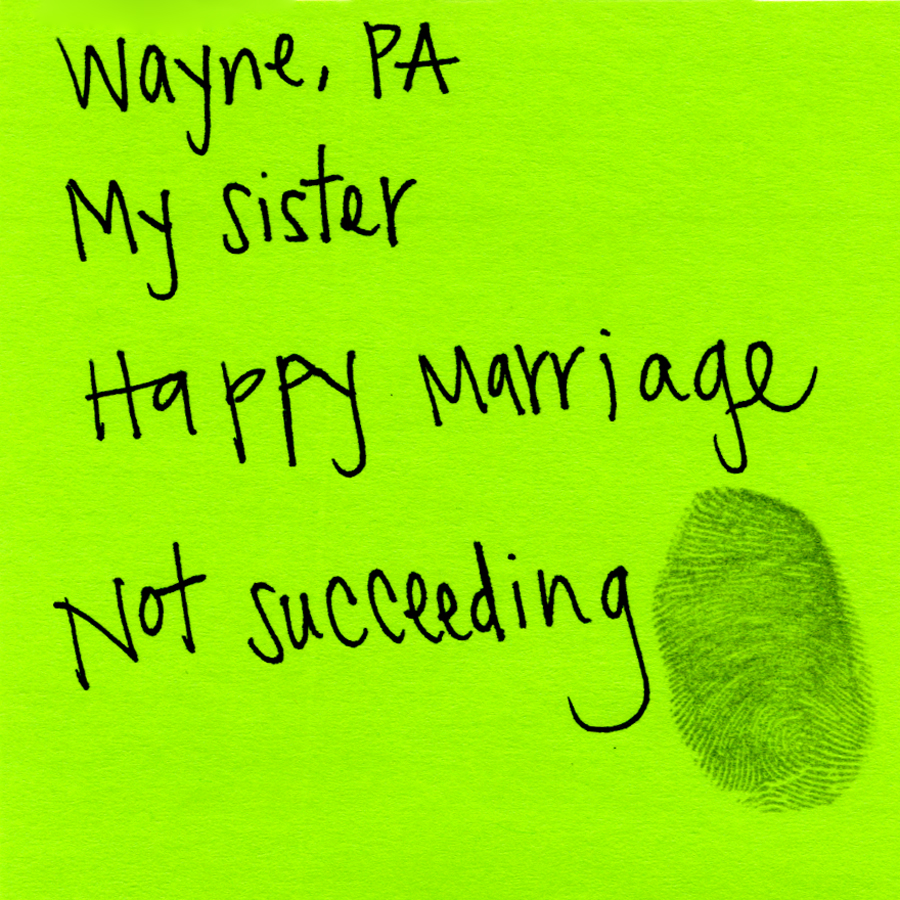 Wayne, PA
My sister
Happy Marriage
Not succeeding